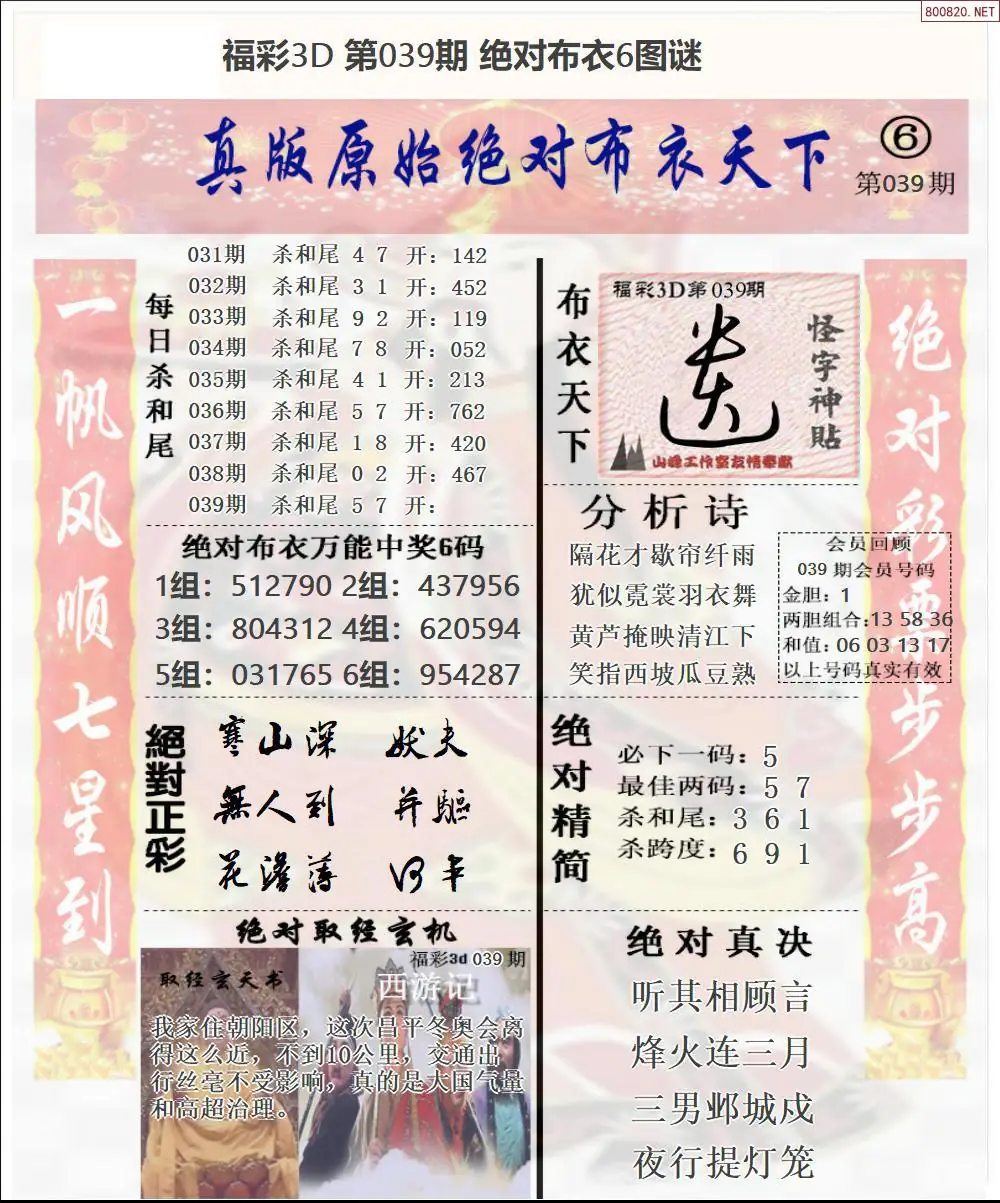 800820.NET
福彩3D 第039期 绝对布衣6图谜
真版原始绝对布衣天下
⑥
第039期
一帆风顺七星到
每日杀和尾
031期 杀和尾 4 7 开：142
032期 杀和尾 3 1 开：452
033期 杀和尾 9 2 开：119
034期 杀和尾 7 8 开：052
035期 杀和尾 4 1 开：213
036期 杀和尾 5 7 开：762
037期 杀和尾 1 8 开：420
038期 杀和尾 0 2 开：467
039期 杀和尾 5 7 开：
绝对布衣万能中奖6码
1组：512790 2组：437956
3组：804312 4组：620594
5组：031765 6组：954287
絕對正彩
寒山深 妖夫
無人到 并驅
花澹薄 卡
绝对取经玄机
福彩3d 039 期
取经玄天书
西游记
我家住朝阳区，这次昌平冬奥会离
得这么近，不到10公里，交通出
行丝毫不受影响，真的是大国气量
和高超治理。
布衣天下
福彩3D第039期
怪字神贴
山峰工作室友情奉献
分析诗
隔花才歇帘纤雨
犹似霓裳羽衣舞
黄芦掩映清江下
笑指西坡瓜豆熟
会员回顾
039 期会员号码
金胆：1
两胆组合:13 58 36
和值：06 03 13 17
以上号码真实有效
绝对精简
必下一码：5
最佳两码：5 7
杀和尾：3 6 1
杀跨度：6 9 1
绝对真决
听其相顾言
烽火连三月
三男邺城戍
夜行提灯笼
绝对彩票步步高